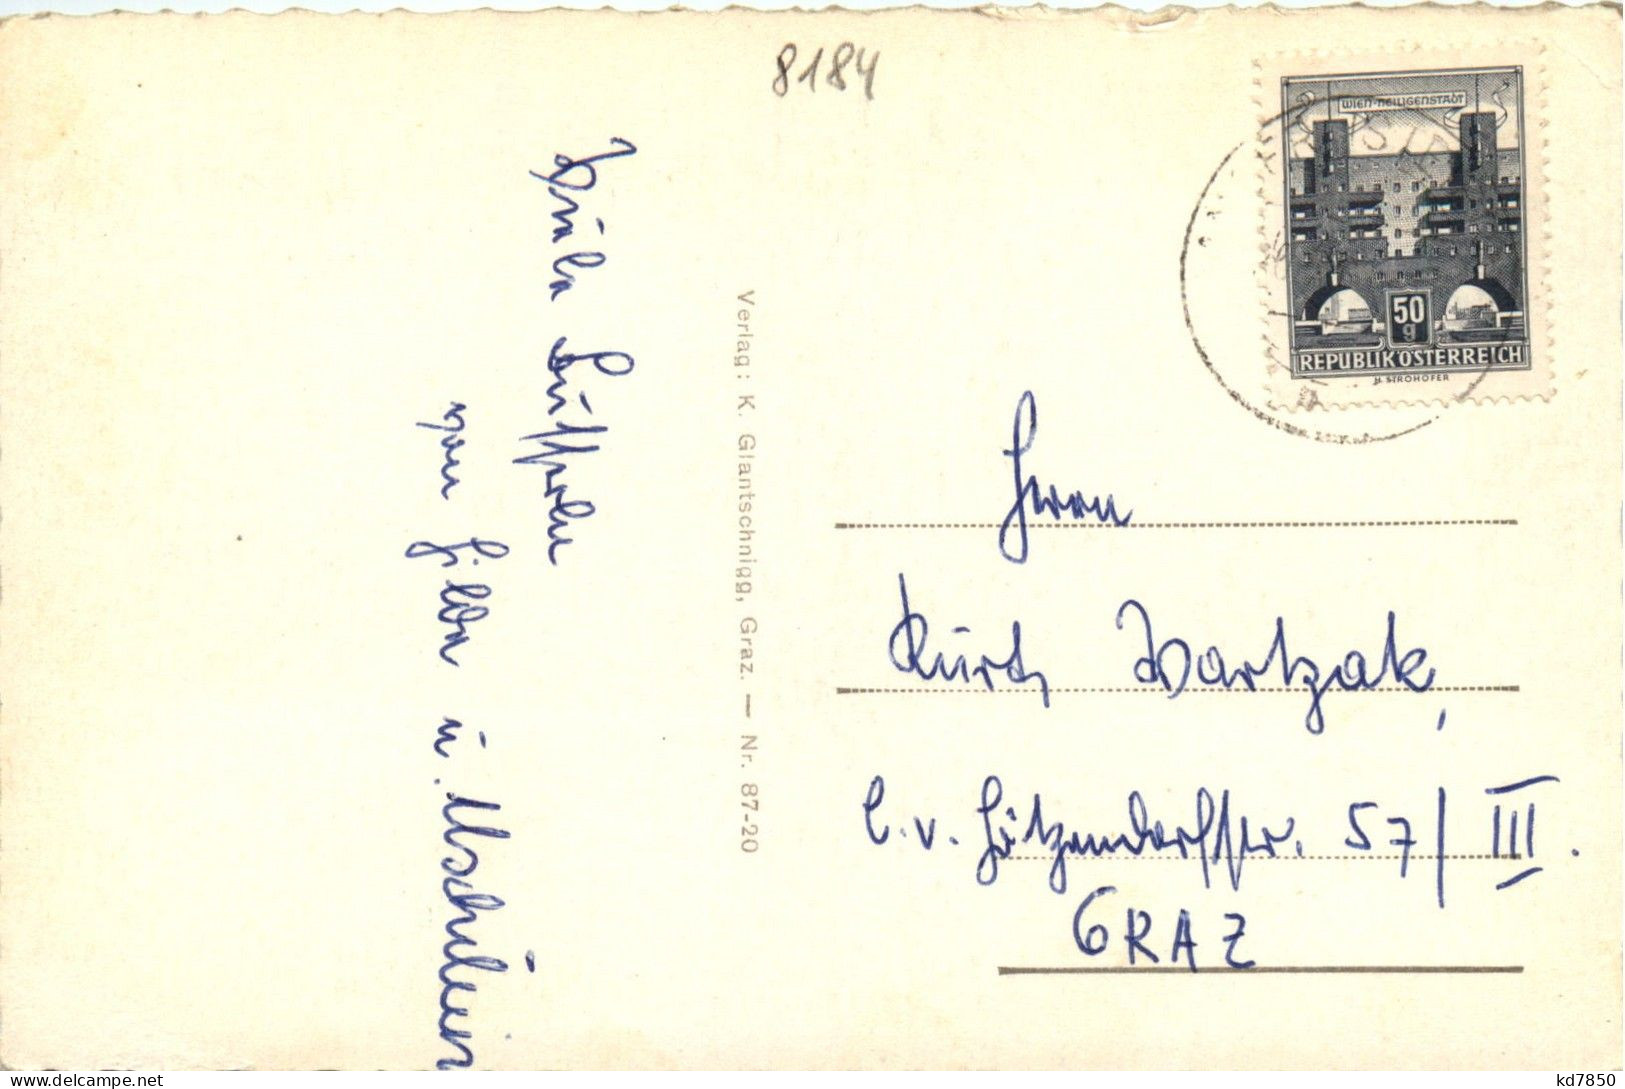 8184
WIEN-HEILIGENSTADT
50
g
REPUBLIK ÖSTERREICH
H. STROHOFER
Viele Grüße
von Hilda u.
Verlag: K. Glantschnigg, Graz. — Nr. 87-20
Herrn
Kurt Wartzak,
C. v. Hötzendorfstr. 57/III.
GRAZ
www.delcampe.net
kd7850